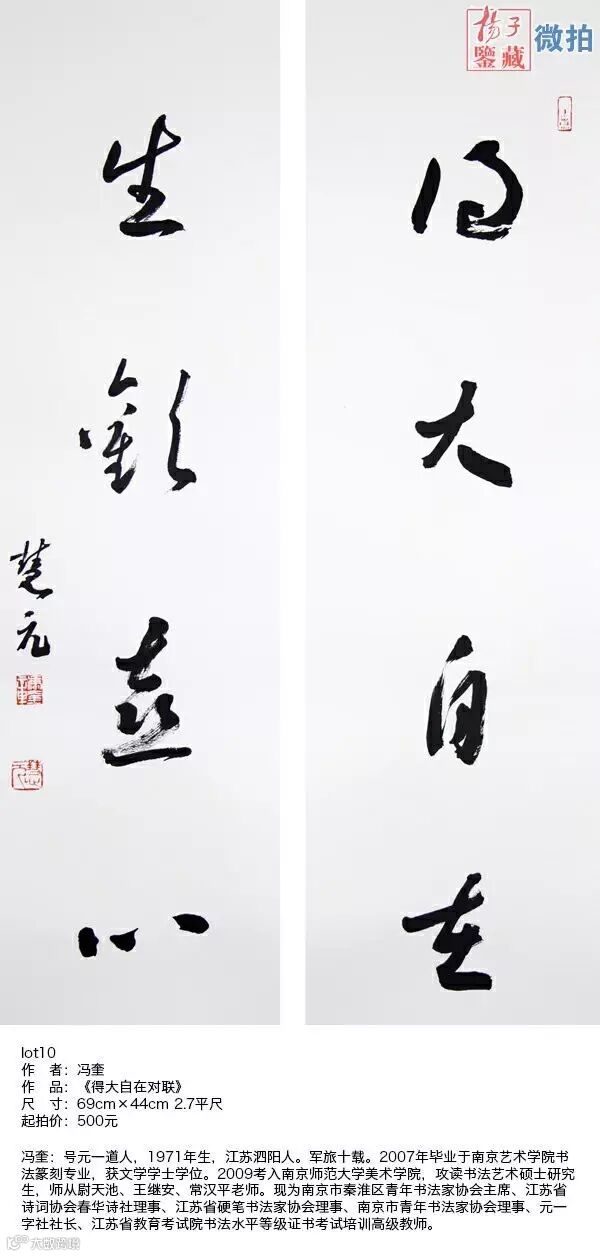 揚子
鑒藏
微拍
得大自在
生歡喜心
慧元
lot10
作 者：冯奎
作 品：《得大自在对联》
尺 寸：69cm×44cm 2.7平尺
起拍价：500元
冯奎：号元一道人，1971年生，江苏泗阳人。军旅十载。2007年毕业于南京艺术学院书
法篆刻专业，获文学学士学位。2009考入南京师范大学美术学院，攻读书法艺术硕士研究
生，师从尉天池、王继安、常汉平老师。现为南京市秦淮区青年书法家协会主席、江苏省
诗词协会春华诗社理事、江苏省硬笔书法家协会理事、南京市青年书法家协会理事、元一
字社社长、江苏省教育考试院书法水平等级证书考试培训高级教师。
大数跨境